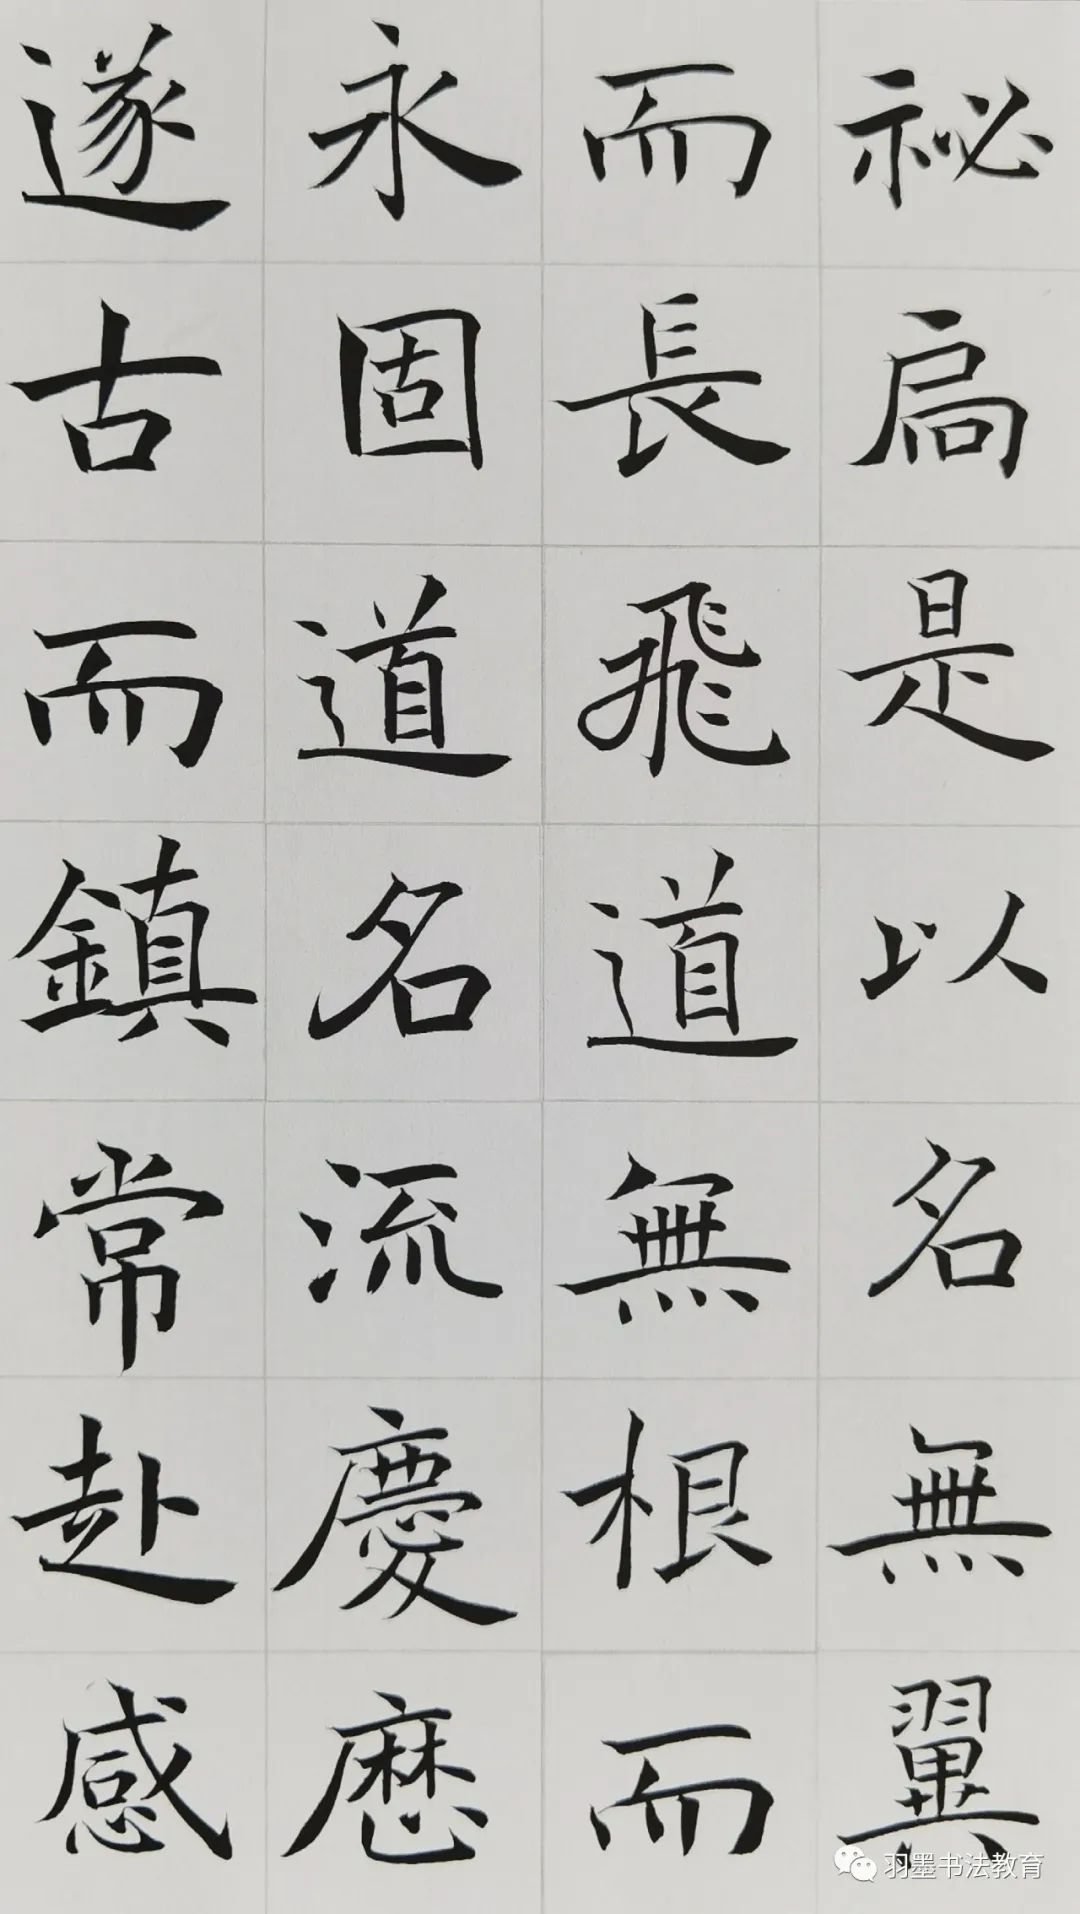 祕扃是以名無翼
而長飛道無根而
永固道名流慶歴
遂古而鎮常赴感
羽墨书法教育